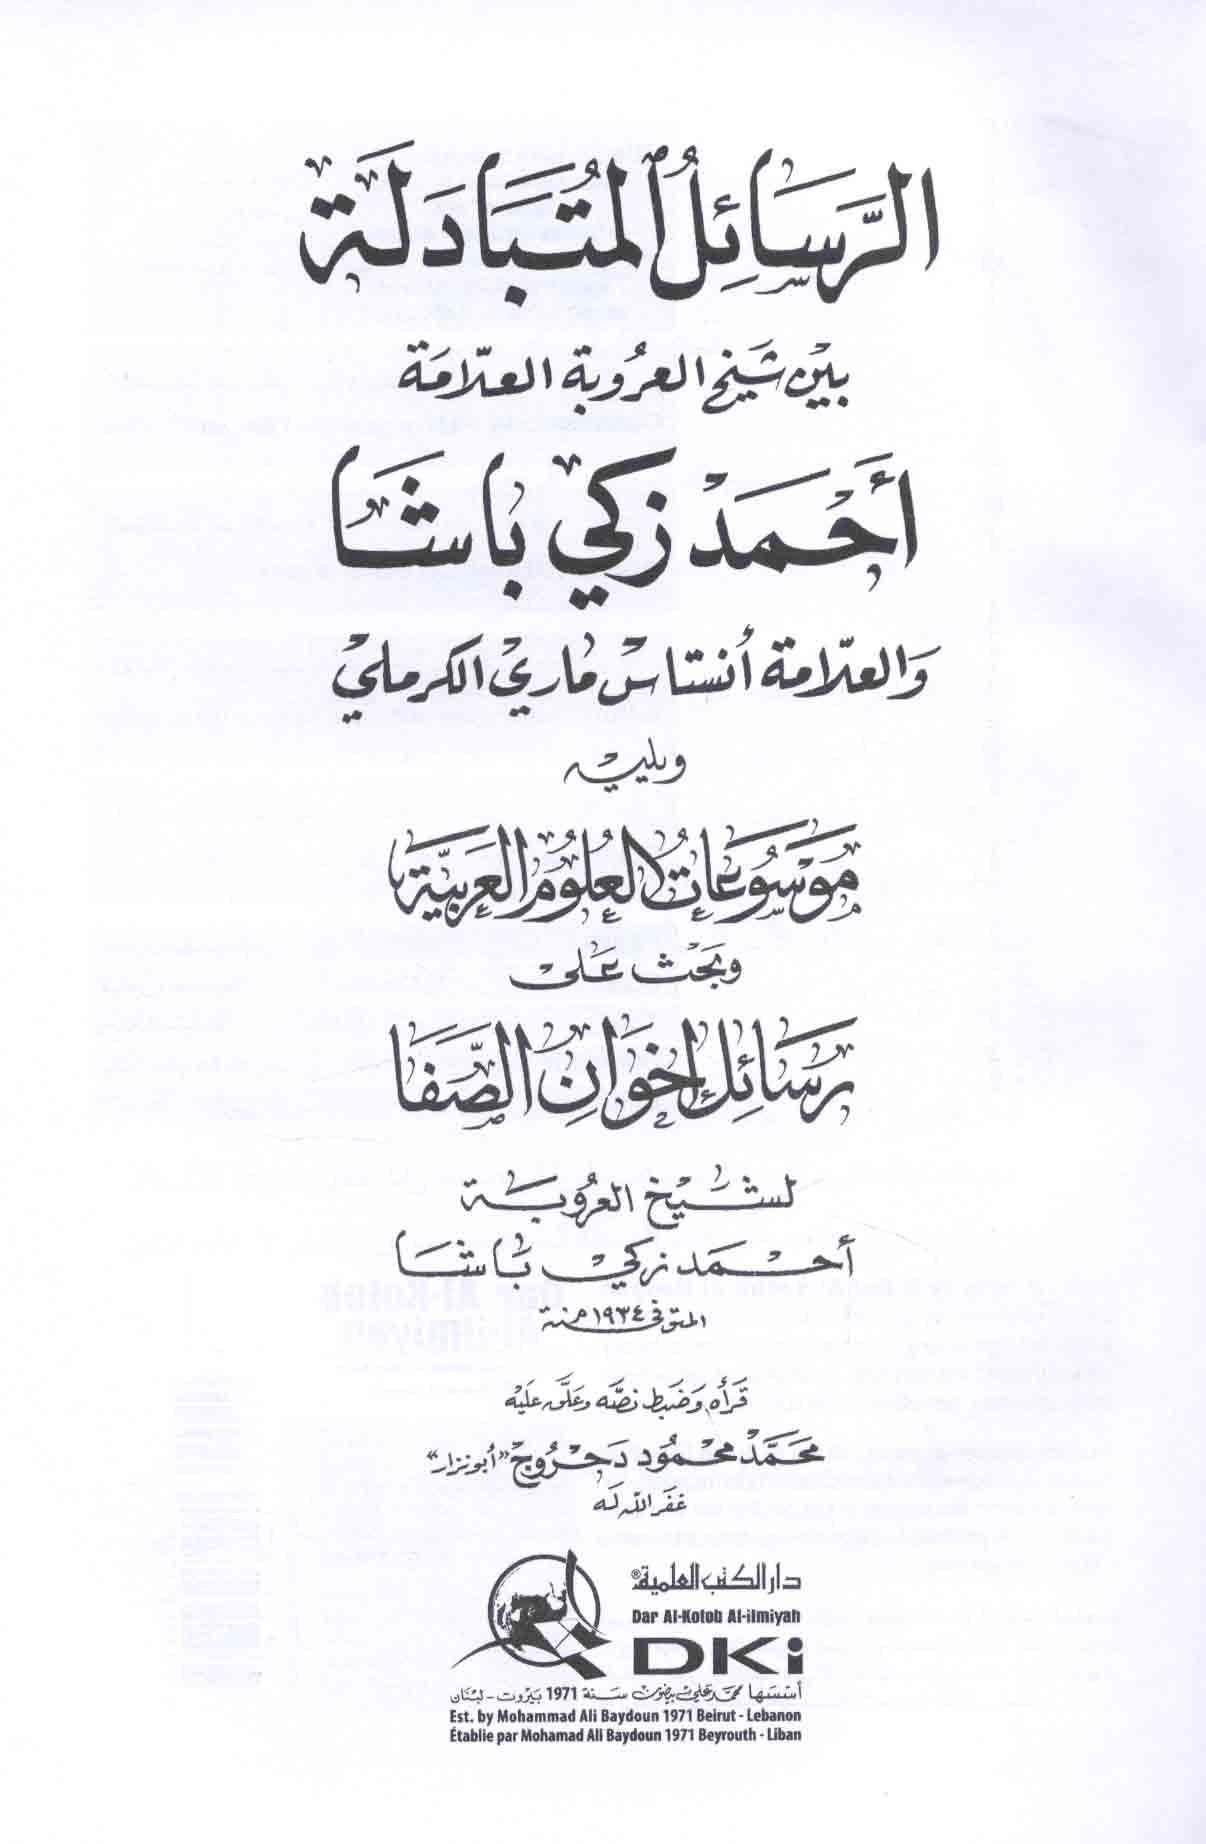 الرَّسَائِلُ المُتَبَادَلَة
بين شيخ العُروبة العلّامَة
أحمَد زكي باشا
وَالعلّامة أنستاس ماري الكرملي
ويليه
مَوسُوعَاتُ العُلُومِ العَرَبِيَّة
وبَحث عَلى
رسَائِل إخوَانِ الصَّفَا
لشَيخ العُروبَة
أحمَد زكي باشا
المتوفى ١٩٣٤ سنة
قرَأه وَضبط نصّه وَعلّق عَليه
محَمَّد محمُود دَحرُوج "أبو نزار"
غفَر الله لَه
دار الكتب العلمية®
Dar Al-Kotob Al-ilmiyah
DKi
أسّسها محمد علي بيضون سنة 1971 بيروت - لبنان
Est. by Mohammad Ali Baydoun 1971 Beirut - Lebanon
Établie par Mohamad Ali Baydoun 1971 Beyrouth - Liban